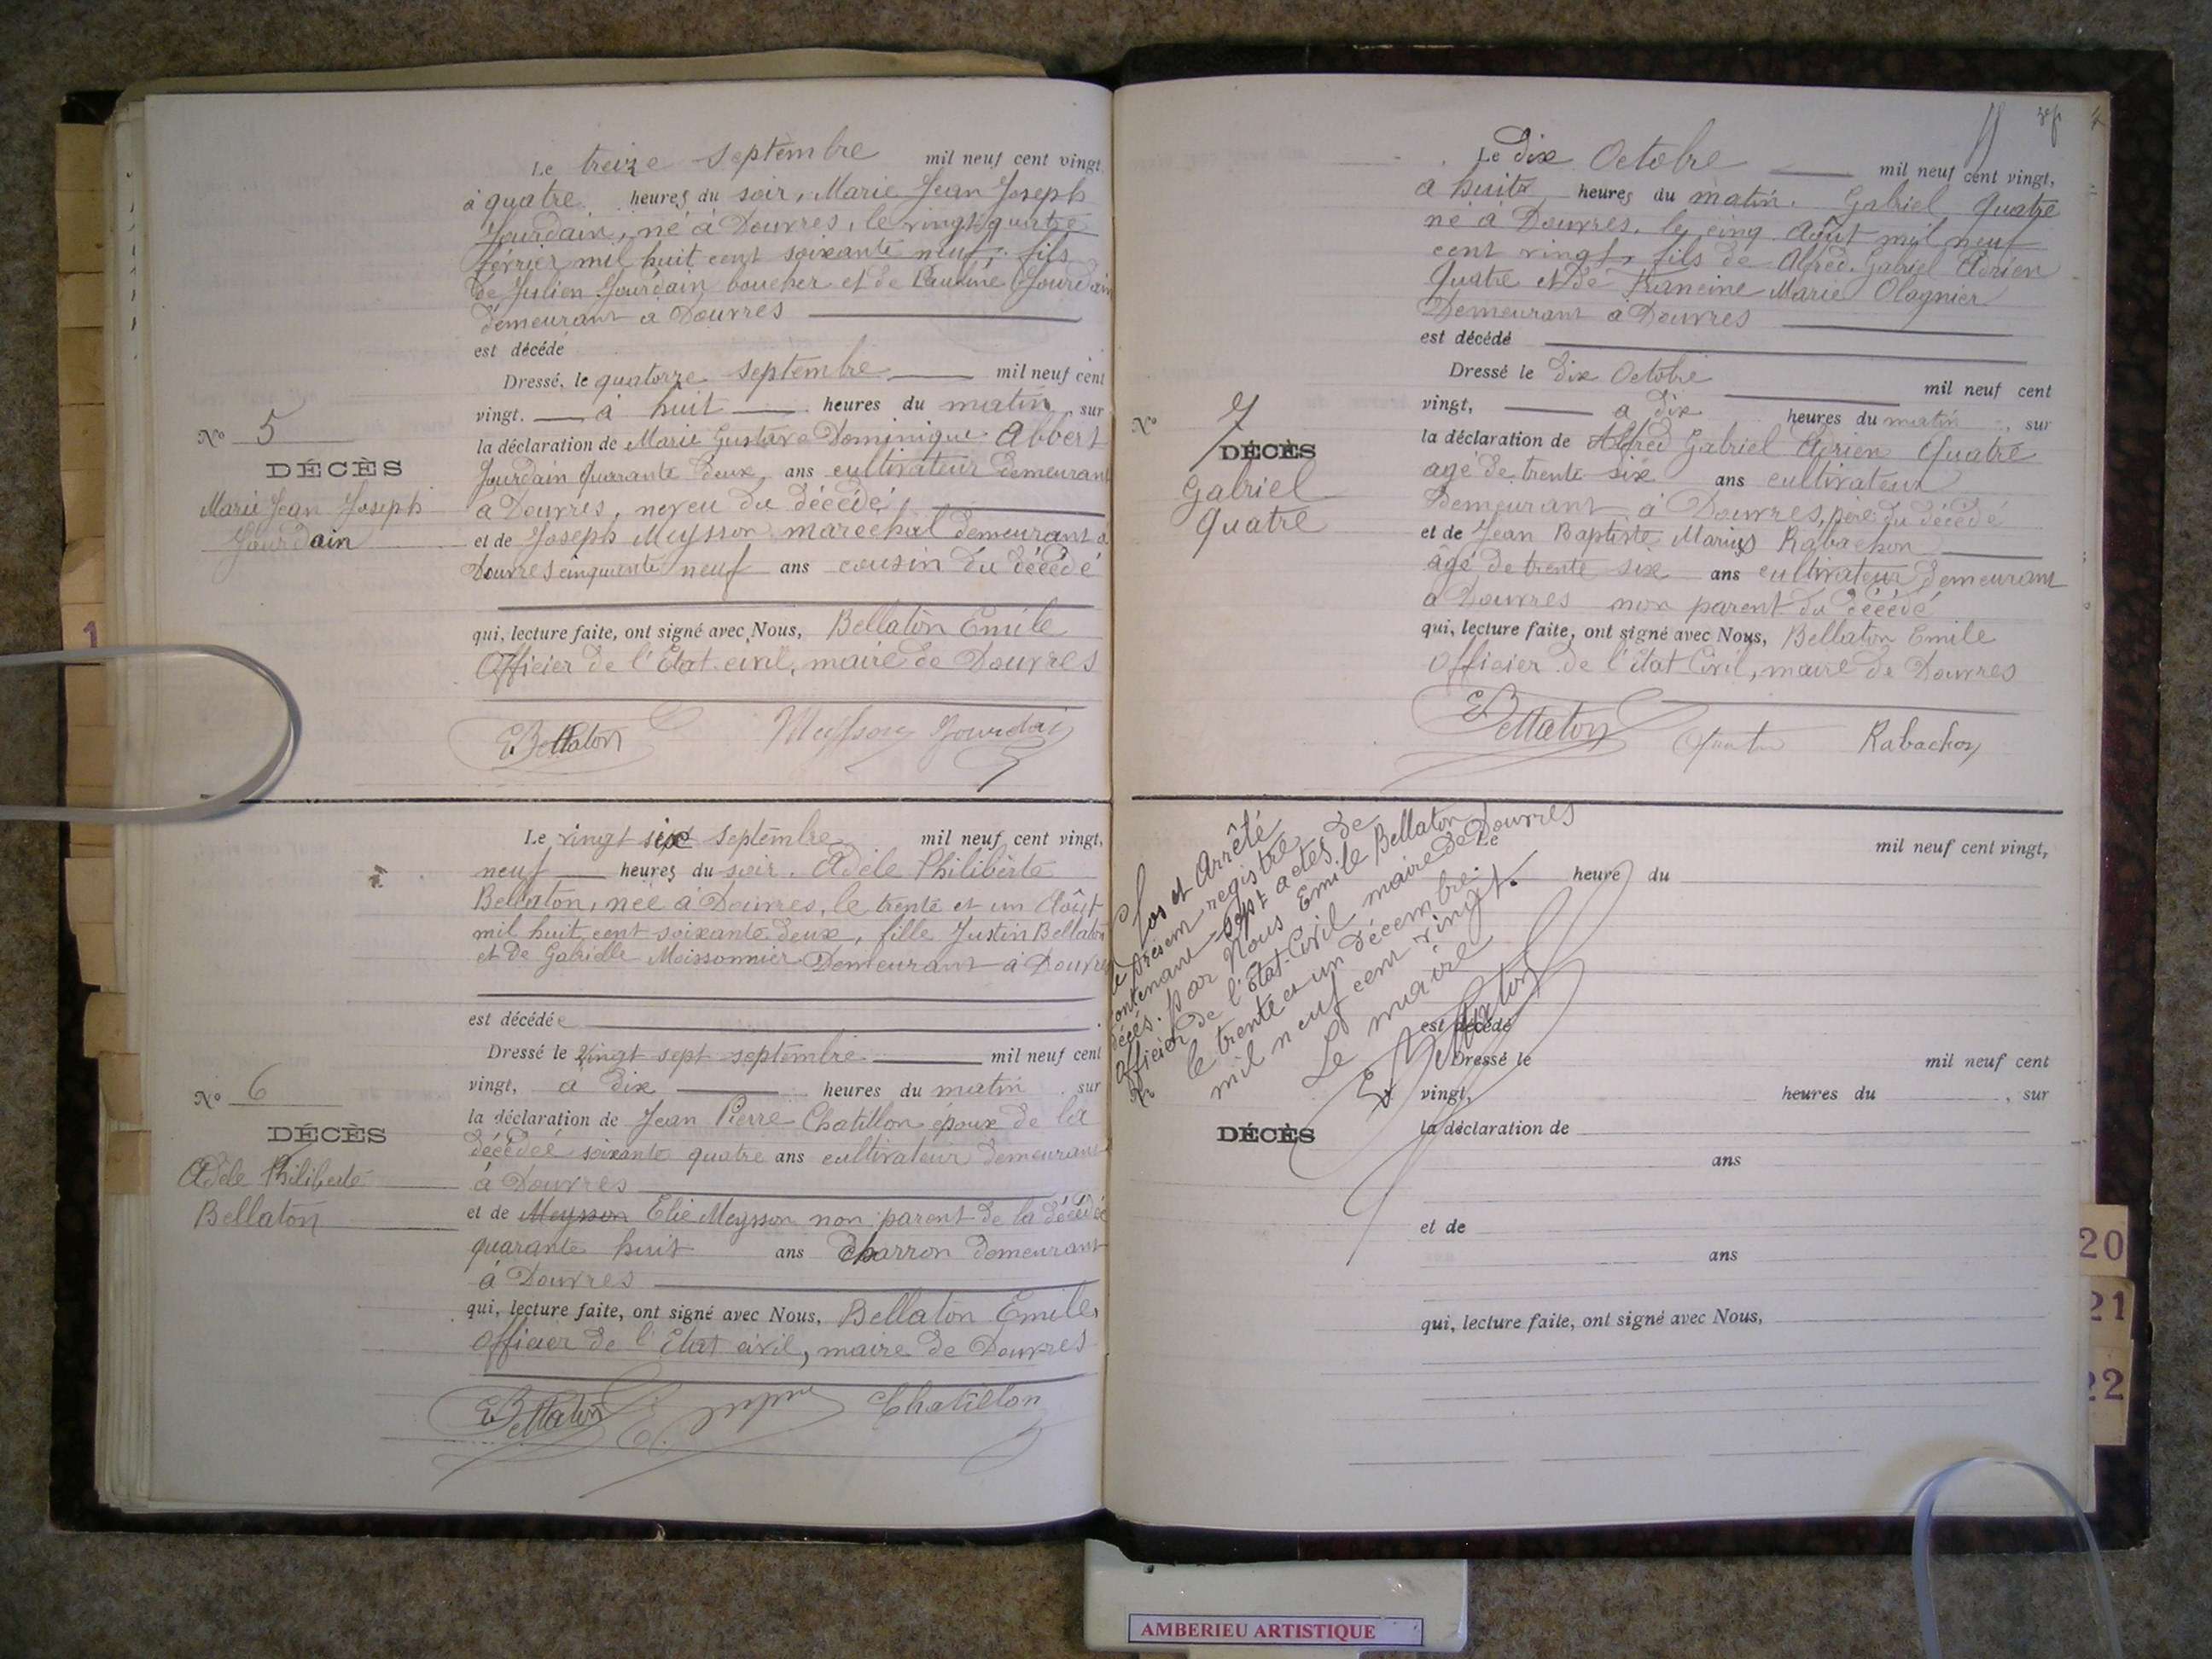 Le treize Septembre mil neuf cent vingt,
à quatre heures du soir, Marie Jean Joseph
Jourdain, né à Douvres, le vingt quatre
février mil huit cent soixante neuf, fils
de Julien Jourdain boucher et de Pauline Jourdain
demeurant a Douvres
est décédé
Dressé, le quatorze septembre mil neuf cent
vingt. à huit heures du matin, sur
la déclaration de Marie Gustave Dominique Albert
Jourdain quarante deux ans cultivateur demeurant
a Douvres, neveu du décédé
et de Joseph Meysson marechal demeurant à
Douvres cinquante neuf ans cousin du décédé
qui, lecture faite, ont signé avec Nous, Bellaton Emile
Officier de l'Etat-civil, maire de Douvres
EBellaton Meysson Jourdain
No 5
DÉCÈS
Marie Jean Joseph
Jourdain
Le vingt six septembre mil neuf cent vingt,
neuf heures du soir. Adele Philiberte
Bellaton, née à Douvres, le trente et un Août
mil huit cent soixante deux, fille Justin Bellaton
et de Gabrielle Moissonnier Demeurant à Douvres
est décédée
Dressé le Vingt sept septembre mil neuf cent
vingt, a dix heures du matin sur
la déclaration de Jean Pierre Chatillon époux de la
décédée soixante quatre ans cultivateur demeurant
à Douvres
et de Meysson Elie Meysson non parent de la décédée
quarante huit ans charron demeurant
à Douvres
qui, lecture faite, ont signé avec Nous, Bellaton Emile,
officier de l'Etat civil, maire de Douvres
EBellaton Chatillon
No 6
DÉCÈS
Adele Philiberte
Bellaton
1
Le dix Octobre mil neuf cent vingt,
a huit heures du matin. Gabriel Quatre
né à Douvres, le cinq Août mil neuf
cent vingt, fils de Alfred Gabriel Adrien
Quatre et de Francine Marie Olagnier
Demeurant à Douvres
est décédé
Dressé le dix Octobre mil neuf cent
vingt, a dix heures du matin, sur
la déclaration de Alfred Gabriel Adrien Quatre
agé de trente six ans cultivateur
demeurant à Douvres, père du décédé
et de Jean Baptiste Marius Rabachon
âgé de trente six ans cultivateur demeurant
a Douvres non parent du décédé
qui, lecture faite, ont signé avec Nous, Bellaton Emile
Officier de l'état Civil, maire de Douvres
EBellaton Quatre Rabachon
No 7
DÉCÈS
Gabriel
Quatre
Clos et Arrêté
le présent registre
contenant sept actes de
décès. par Nous Emile Bellaton
officier de l'état-Civil maire de Douvres
le trente et un décembre
mil neuf cent vingt.
Le maire
EBellaton
Le mil neuf cent vingt,
heure du
est décédé
Dressé le mil neuf cent
vingt, heures du , sur
No
DÉCÈS
la déclaration de
ans
et de
ans
qui, lecture faite, ont signé avec Nous,
20
21
22
AMBERIEU ARTISTIQUE